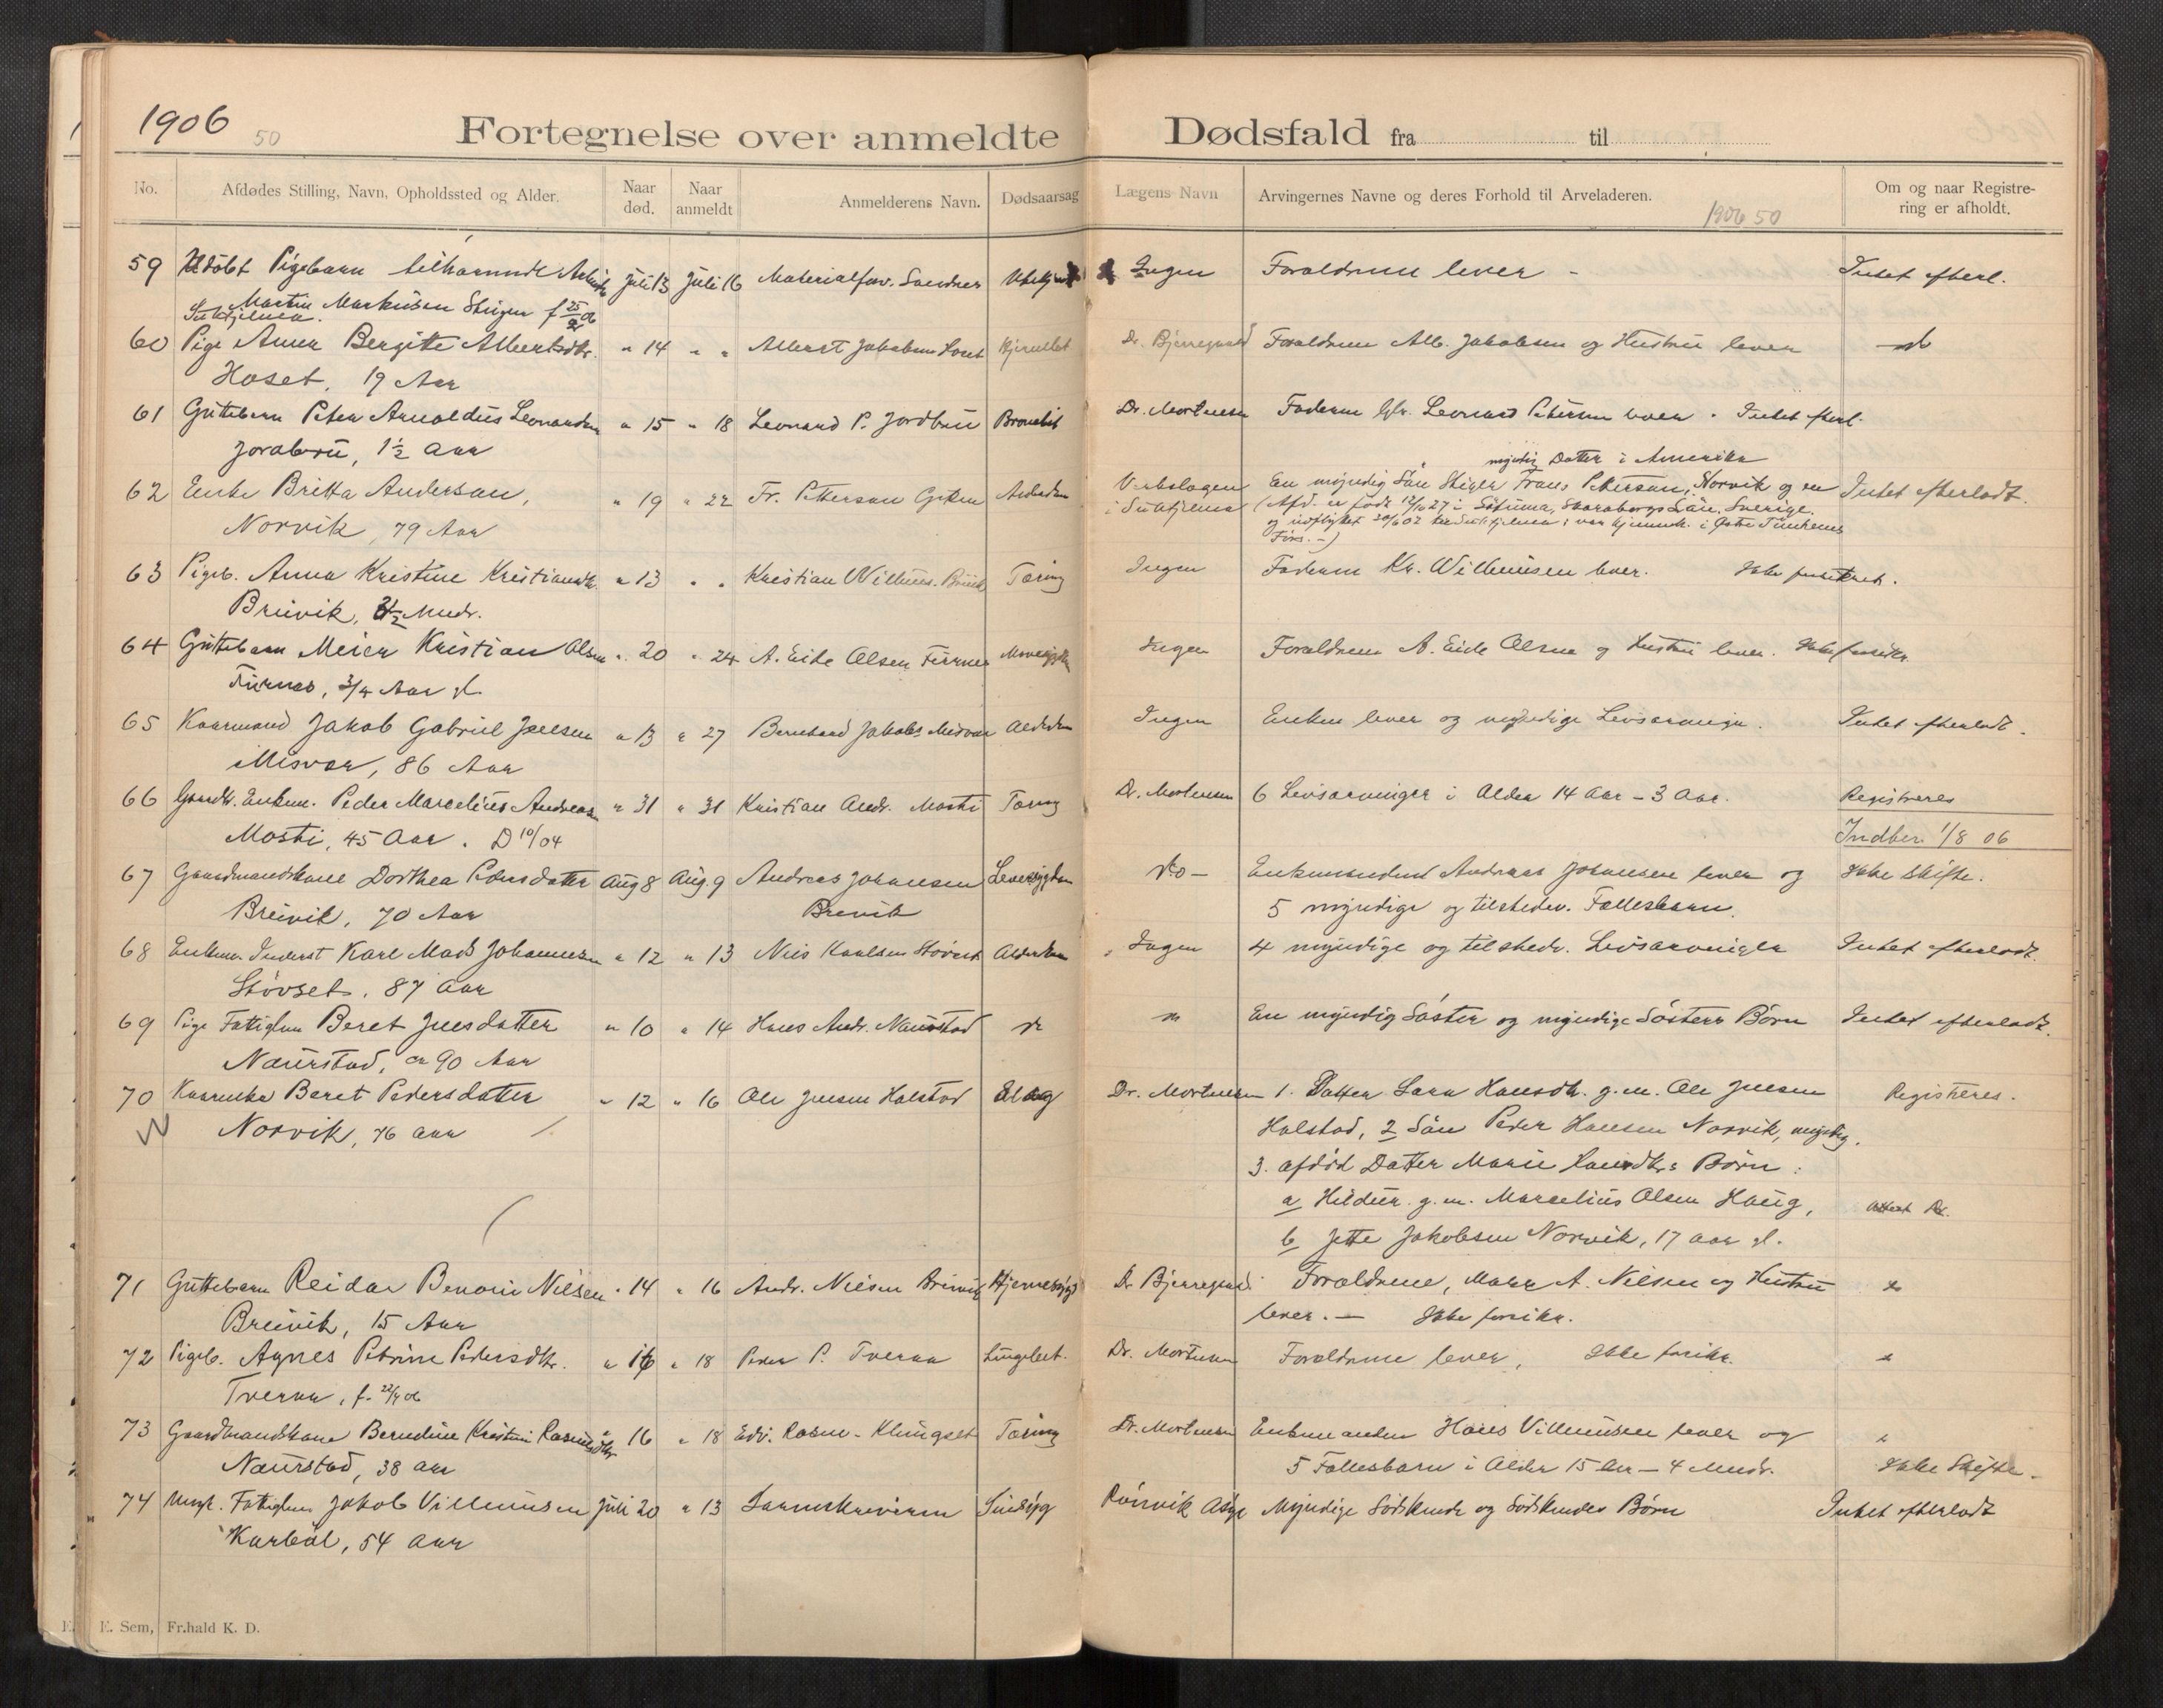 1906
50
Fortegnelse over anmeldte Dødsfald fra til
No. Afdødes Stilling, Navn, Opholdssted og Alder. Naar død. Naar anmeldt Anmelderens Navn. Dødsaarsag Lægens Navn Arvingernes Navne og deres Forhold til Arveladeren. Om og naar Registrering er afholdt.
1906 50
59 Udøbt Pigebarn tilhørende juli 13 juli 16 Materialforv. Ubekjendt Ingen Forældrene lever - Intet efterl.
Martin Markusen Stiger f 25/2 06
Sulitjelma.
60 Pige Anna Bergitte Albertsdtr. " 14 " " Albert Jakobsen Hoset Dr. Bjerregaard Forældrene Alb. Jakobsen og Hustru lever do
Hoset, 19 Aar
61 Guttebarn Peter Arnoldus Leonardsen " 15 " 18 Leonard P. Jordbru Bronchit Dr. Mortensen Faderen Leonard Petersen lever. Intet efterl.
Jordbru, 1½ Aar
myndig Datter i Amerika
62 Enke Britta Anderson, " 19 " 22 Fr. Petterson Alderdom Verkslægen En myndig Søn Stiger Frans Petterson, Norvik og en Intet efterladt.
i Sulitjelma (Afd. er født 12/10 27 i Skaraborgs Län, Sverige.
Norvik, 79 Aar
og indflyttet til Sulitjelma; var hjemmeh. i
63 Pigeb. Anna Kristine Kristiansdtr. " 13 " " Kristian Willums. Breivik Tæring Ingen Faderen Kr. Willumsen lever. Ikke forsikret.
Breivik, Mndr.
64 Guttebarn Meier Kristian Olsen " 20 " 24 A. Eide Olsen Furnes Ingen Forældrene A. Eide Olsen og Hustru lever. Ikke forsikr.
Furnes, 3/4 Aar gl.
65 Kaarmand Jakob Gabriel Jensen " 13 " 27 Bernhard Jakobs. Misvær Alderdom Ingen Enken lever og myndige Livsarvinger. Intet efterladt.
Misvær, 86 Aar
66 Gaardbr. Enkem. Peder Marcelius Andreasen " 31 " 31 Kristian Andr. Mosti Tæring Dr. Mortensen 6 Livsarvinger i Alder 14 Aar - 3 Aar. Registreres
Mosti, 45 Aar. D 10/04 Indber. 1/8 06
67 Gaardmandskone Dorthea Pedersdatter Aug 8 Aug. 9 Andreas Johansen Leversygdom do - Enkemanden Andreas Johansen lever og Ikke Skifte.
Breivik, 70 Aar Breivik 5 myndige og tilstedev. Fællesbørn.
68 Enkem. Inderst Karl Mads Johannesen " 12 " 13 Nils Karlsen Støvset Alderdom Ingen 4 myndige og tilstedev. Livsarvinger Intet efterladt.
Støvset, 87 Aar
69 Pige Fattiglem Beret Jensdatter " 10 " 14 Hans Andr. Naurstad do En myndig Søster og myndige Søsters Børn Intet efterladt.
Naurstad, ca 90 Aar
70 Kaarenke Beret Pedersdatter " 12 " 16 Ole Jensen Halstad Dr. Mortensen 1. Datter Lara Hansdtr. g. m. Ole Jensen Registreres.
Norvik, 76 Aar Halstad, 2 Søn Peder Hansen Norvik, myndig.
3. afdød Datter Marie Hansdtrs Børn:
a Hildur g. m. Marcelius Olsen Haug,
b Jette Jakobsen Norvik, 17 Aar gl.
71 Guttebarn Reidar Benoni Nilsen " 14 " 16 Andr. Nilsen Breivik Dr Bjerregaard Forældrene, Maler A. Nilsen og Hustru
Breivik, 15 Aar lever. — Ikke forsikr.
72 Pigeb. Agnes Petrine Pedersdtr. " 16 " 18 Peder P. Tveraa Lungebet. Dr. Mortensen Forældrene lever, Ikke forsikr.
Tveraa, f. 22/4 06
73 Gaardmandskone Berndine Kristine Rasmusdtr " 16 " 18 Edv. Rasm. Klungset Tæring Dr. Mortensen Enkemanden Hans Villumsen lever og
Naurstad, 38 Aar 5 Fællesbørn i Alder 15 Aar - 4 Mndr. Ikke Skifte.
74 Ungk. Fattiglem Jakob Villumsen juli 20 " 13 Lensmanden Sindsyg Rønvik Asyl Myndige Sødskende og Sødskendes Børn Intet efterladt
Karbøl, 54 Aar
E. Sem, Fr.hald K. D.